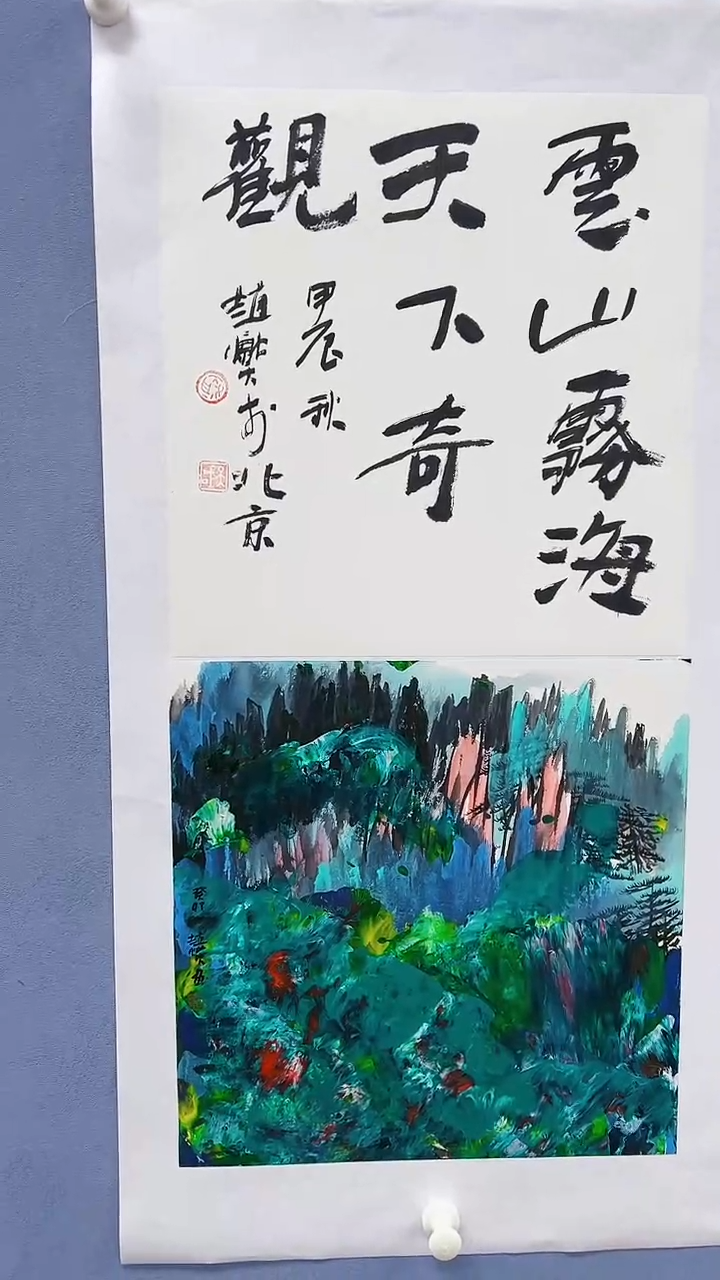 雲山霧海
天下奇
觀
甲辰秋
趙
於北京